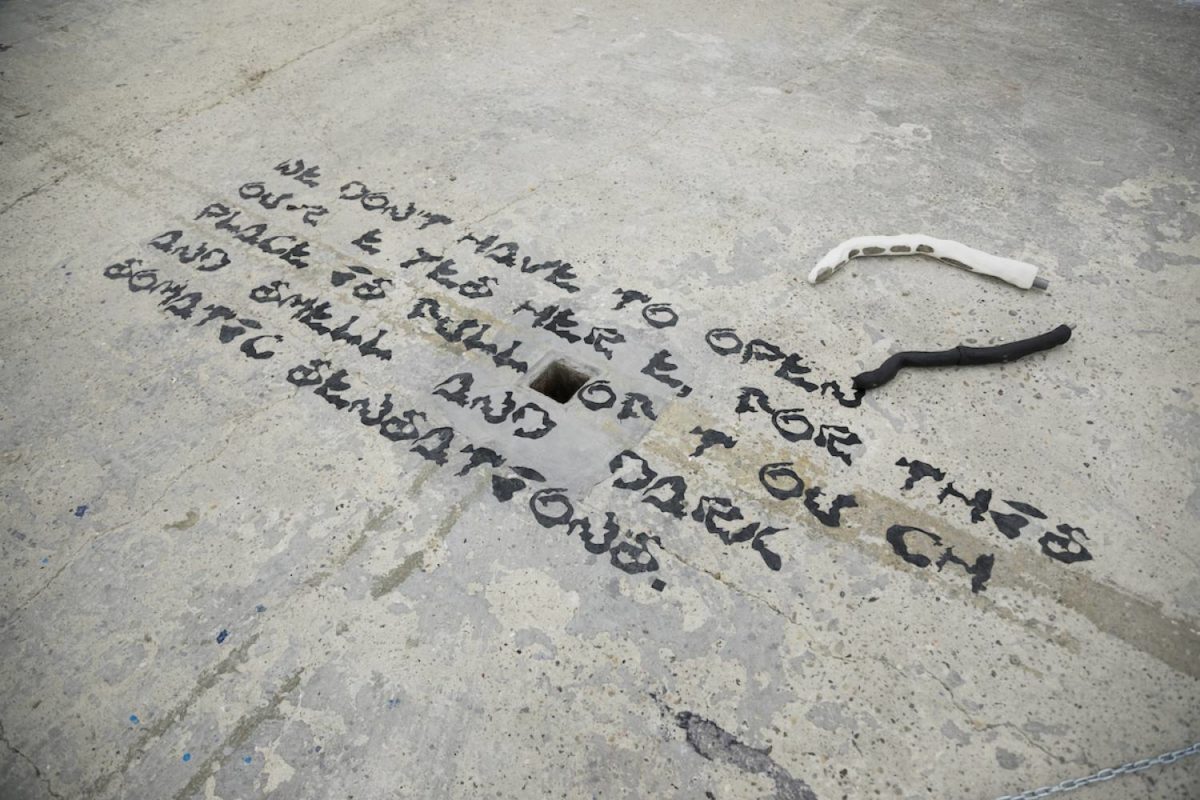 WE DON'T HAVE TO OPEN
OUR EYES HERE, FOR THIS
PLACE IS FULL OF TOUCH
AND SMELL AND DARK
SOMATIC SENSATIONS.